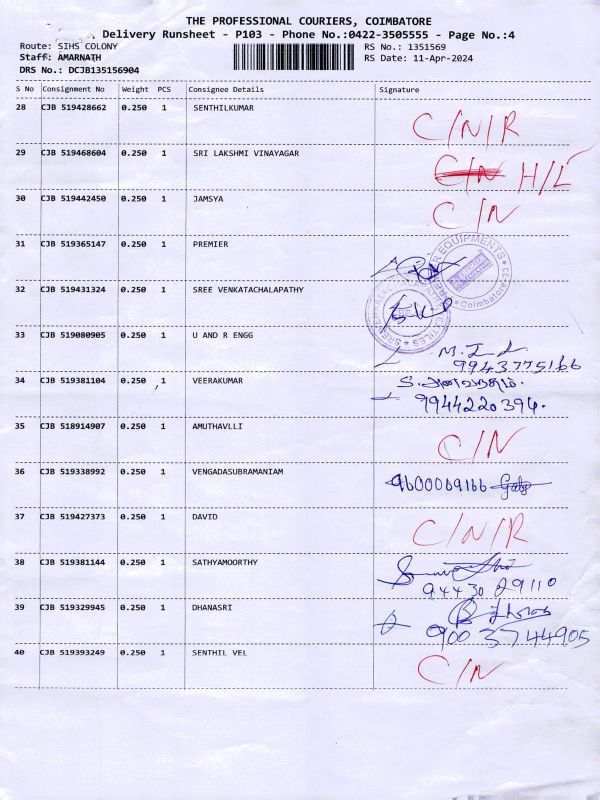 THE PROFESSIONAL COURIERS, COIMBATORE
Delivery Runsheet - P103 - Phone No.:0422-3505555 - Page No.:4
Route: SIHS COLONY RS No.: 1351569
Staff: AMARNATH RS Date: 11-Apr-2024
DRS No.: DCJB135156904
S No Consignment No Weight PCS Consignee Details Signature
28 CJB 519428662 0.250 1 SENTHILKUMAR C/N/R
29 CJB 519468604 0.250 1 SRI LAKSHMI VINAYAGAR C/N H/L
30 CJB 519442450 0.250 1 JAMSYA C/N
31 CJB 519365147 0.250 1 PREMIER
EQUIPMENTS
Coimbatore
32 CJB 519431324 0.250 1 SREE VENKATACHALAPATHY
TEXTILES
33 CJB 519080905 0.250 1 U AND R ENGG
9943775166
34 CJB 519381104 0.250 1 VEERAKUMAR
9944220394.
35 CJB 518914907 0.250 1 AMUTHAVLLI C/N
36 CJB 519338992 0.250 1 VENGADASUBRAMANIAM 9600069166
37 CJB 519427373 0.250 1 DAVID C/N/R
38 CJB 519381144 0.250 1 SATHYAMOORTHY
94430 29110
39 CJB 519329945 0.250 1 DHANASRI
900 3744905
40 CJB 519393249 0.250 1 SENTHIL VEL C/N